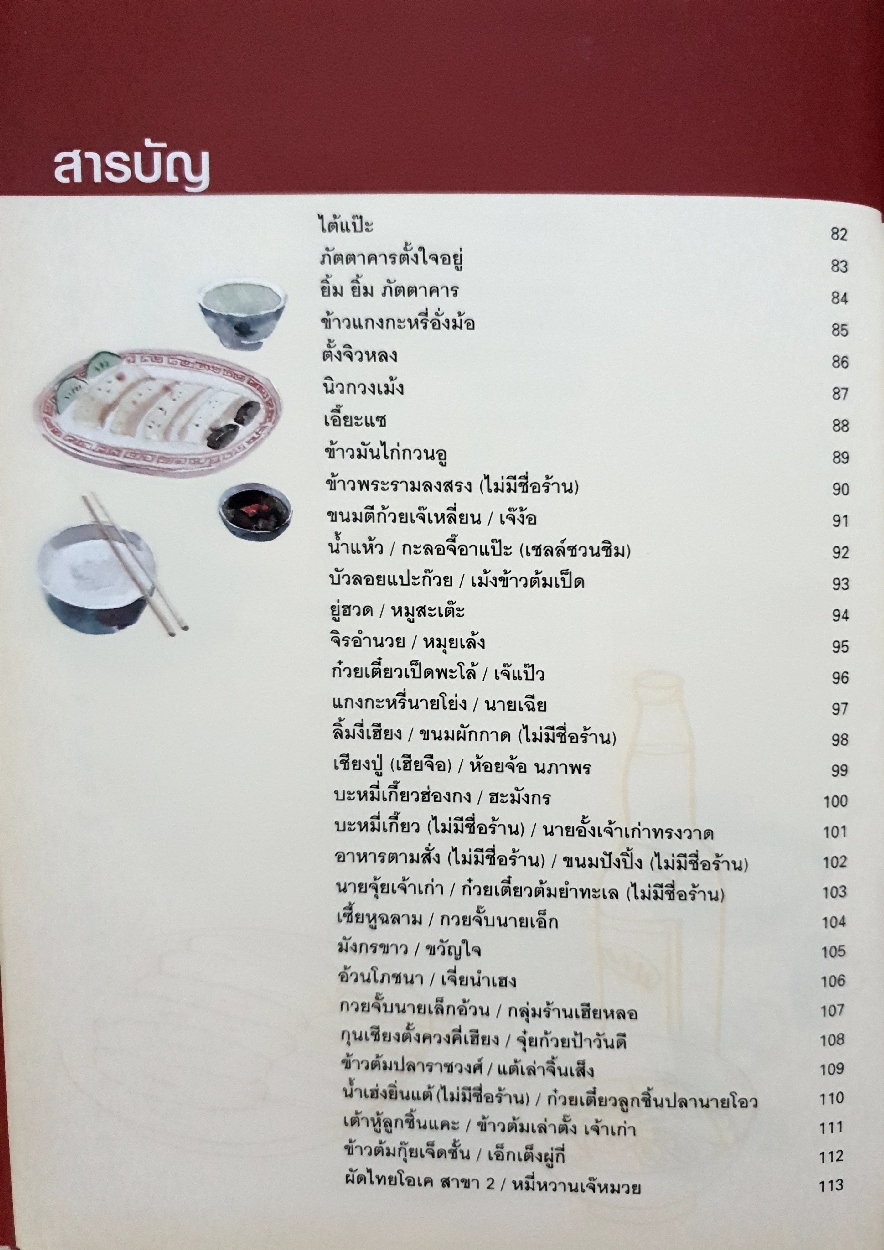 สารบัญ
ไต้แป๊ะ 82
ภัตตาคารตั้งใจอยู่ 83
ยิ้ม ยิ้ม ภัตตาคาร 84
ข้าวแกงกะหรี่อั่งม้อ 85
ตั้งจิวหลง 86
นิวกวงเม้ง 87
เอี๊ยะแซ 88
ข้าวมันไก่กวนอู 89
ข้าวพระรามลงสรง (ไม่มีชื่อร้าน) 90
ขนมตีก้วยเจ๊เหลี่ยน / เจ๊ง้อ 91
น้ำแห้ว / กะลอจี๊อาแป๊ะ (เชลล์ชวนชิม) 92
บัวลอยแปะก๊วย / เม้งข้าวต้มเป็ด 93
ยู่ฮวด / หมูสะเต๊ะ 94
จิรอำนวย / หมุยเล้ง 95
ก๋วยเตี๋ยวเป็ดพะโล้ / เจ๊แป๊ว 96
แกงกะหรี่นายโย่ง / นายเฉีย 97
ลิ้มงี่เฮียง / ขนมผักกาด (ไม่มีชื่อร้าน) 98
เชียงปู่ (เฮียจือ) / ห้อยจ้อ นภาพร 99
บะหมี่เกี๊ยวฮ่องกง / ฮะมังกร 100
บะหมี่เกี๊ยว (ไม่มีชื่อร้าน) / นายอั้งเจ้าเก่าทรงวาด 101
อาหารตามสั่ง (ไม่มีชื่อร้าน) / ขนมปังปิ้ง (ไม่มีชื่อร้าน) 102
นายจุ้ยเจ้าเก่า / ก๋วยเตี๋ยวต้มยำทะเล (ไม่มีชื่อร้าน) 103
เซี้ยหูฉลาม / กวยจั๊บนายเอ็ก 104
มังกรขาว / ขวัญใจ 105
อ้วนโภชนา / เจี่ยนำเฮง 106
กวยจั๊บนายเล็กอ้วน / กลุ่มร้านเฮียหลอ 107
กุนเชียงตั้งควงคี่เฮียง / จุ๋ยก้วยป้าวันดี 108
ข้าวต้มปลาราชวงศ์ / แต้เล่าจิ้นเส็ง 109
น้ำเฮ่งยิ่นแต้ (ไม่มีชื่อร้าน) / ก๋วยเตี๋ยวลูกชิ้นปลานายโอว 110
เต้าหู้ลูกชิ้นแคะ / ข้าวต้มเล่าตั้ง เจ้าเก่า 111
ข้าวต้มกุ๊ยเจ็ดชั้น / เอ็กเต็งผู่กี่ 112
ผัดไทยโอเค สาขา 2 / หมี่หวานเจ๊หมวย 113